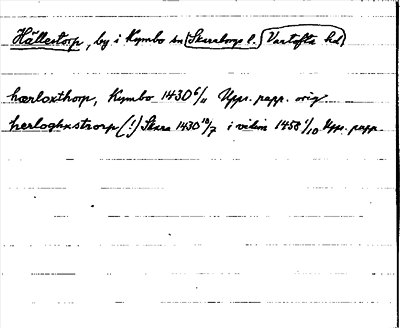 Hällestorp, by i Kymbo sn (Skaraborgs l.) Vartofta hd
hærloxthorp, Kymbo 1430 6/11 Upps. papp. orig
herloghxstrorp (!) Skara 1430 10/7 i vidim 1458 1/10 Upps. papp.